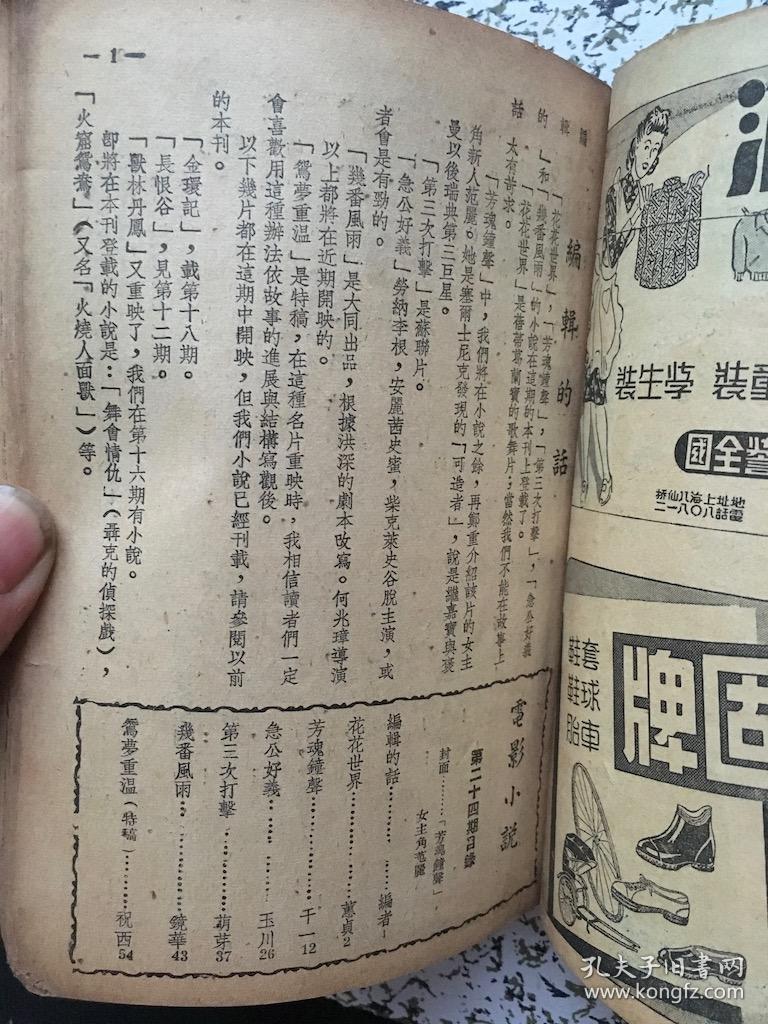 —1—
編輯的話
編輯的話
「花花世界」,「芳魂鐘聲」,「第三次打擊」,「急公好義
」和「幾番風雨」的小說在這期的本刊上登載了。
「花花世界」是蓓蒂葛蘭寶的歌舞片;當然我們不能在故事上
太有苛求。
「芳魂鐘聲」中,我們將在小說之餘,再鄭重介紹該片的女主
角新人范麗。她是塞爾士尼克發現的「可造者」,說是繼嘉寶與褒
曼以後瑞典第三巨星。
「第三次打擊」是蘇聯片。
「急公好義」勞納李根,安麗茜史蜜,柴克萊史谷脫主演,或
者會是有勁的。
「幾番風雨」是大同出品,根據洪深的劇本改寫。何兆璋導演
以上都將在近期開映的。
「鴛夢重温」是特稿,在這種名片重映時,我相信讀者們一定
會喜歡用這種辦法依故事的進展與結構寫觀後。
以下幾片都在這期中開映,但我們小說已經刊載,請參閱以前
的本刊。
「金環記」,載第十八期。
「長恨谷」,見第十二期。
「獸林丹鳳」又重映了,我們在第十六期有小說。
即將在本刊登載的小說是:「舞會情仇」(聶克的偵探戲),
「火窟鴛鴦」(又名「火燒人面獸」)等。
電影小說
第二十四期目錄
封面……「芳魂鐘聲」
女主角范麗
編輯的話………編者1
花花世界………蕙貞2
芳魂鐘聲………干一12
急公好義………玉川26
第三次打擊………萌芽37
幾番風雨………鏡華43
鴛夢重温(特稿)………祝西54
童裝 學生裝
全國
地址上海八仙橋
電話八〇八一二
固牌
套鞋
球鞋
車胎
孔夫子旧书网
www.kongfz.com